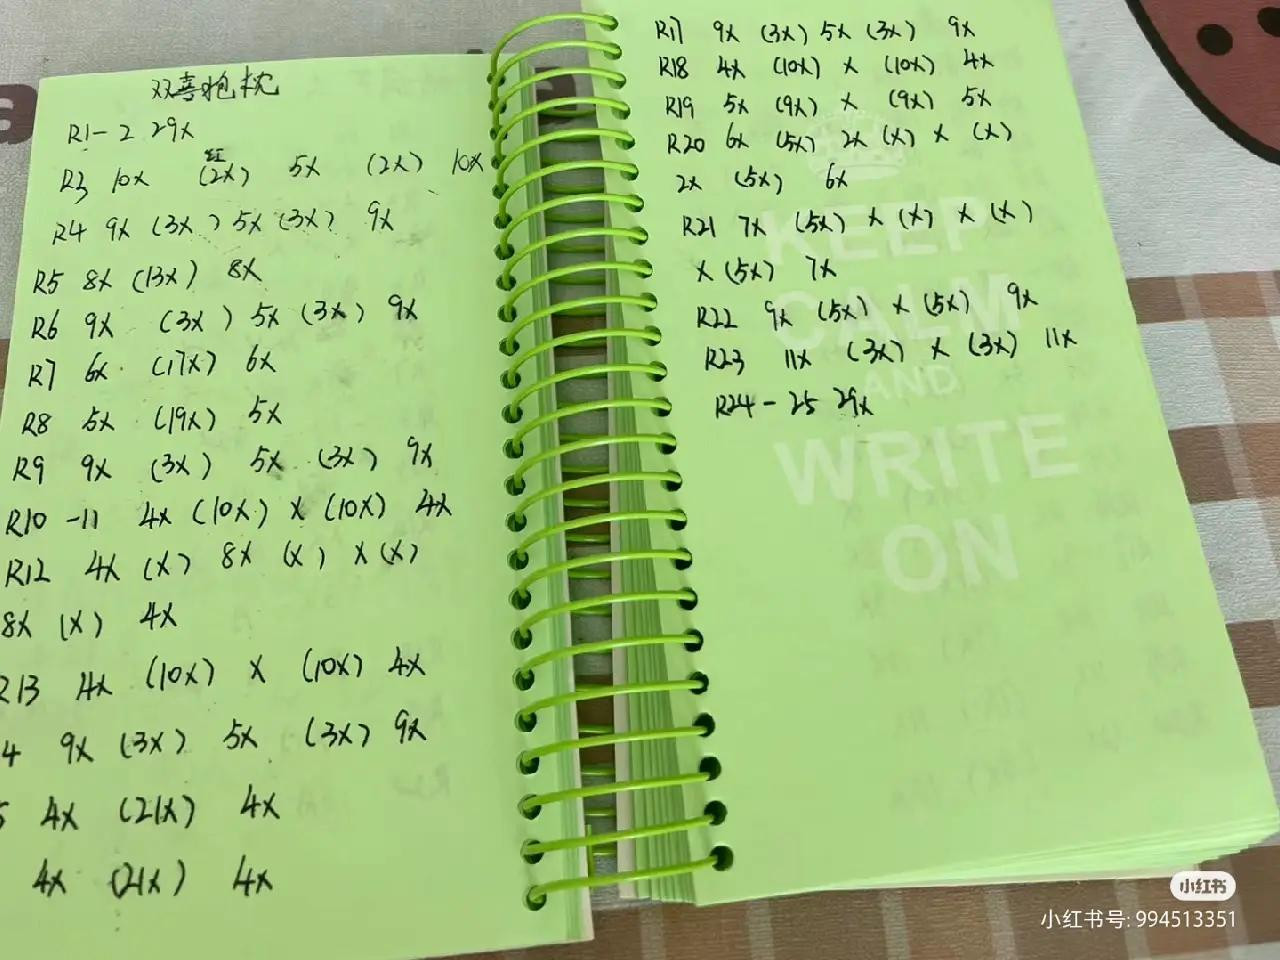 双喜抱枕
R1-2 29X
红
R3 10X (2X) 5X (2X) 10X
R4 9X (3X) 5X (3X) 9X
R5 8X (13X) 8X
R6 9X (3X) 5X (3X) 9X
R7 6X (17X) 6X
R8 5X (19X) 5X
R9 9X (3X) 5X (3X) 9X
R10-11 4X (10X) X (10X) 4X
R12 4X (X) 8X (X) X (X)
8X (X) 4X
R13 4X (10X) X (10X) 4X
4 9X (3X) 5X (3X) 9X
5 4X (21X) 4X
4X (21X) 4X
R17 9X (3X) 5X (3X) 9X
R18 4X (10X) X (10X) 4X
R19 5X (9X) X (9X) 5X
R20 6X (5X) 2X (X) X (X)
2X (5X) 6X
R21 7X (5X) X (X) X (X)
X (5X) 7X
R22 9X (5X) X (5X) 9X
R23 11X (3X) X (3X) 11X
R24-25 29X
KEEP
CALM
AND
WRITE
ON
小红书
小红书号: 994513351